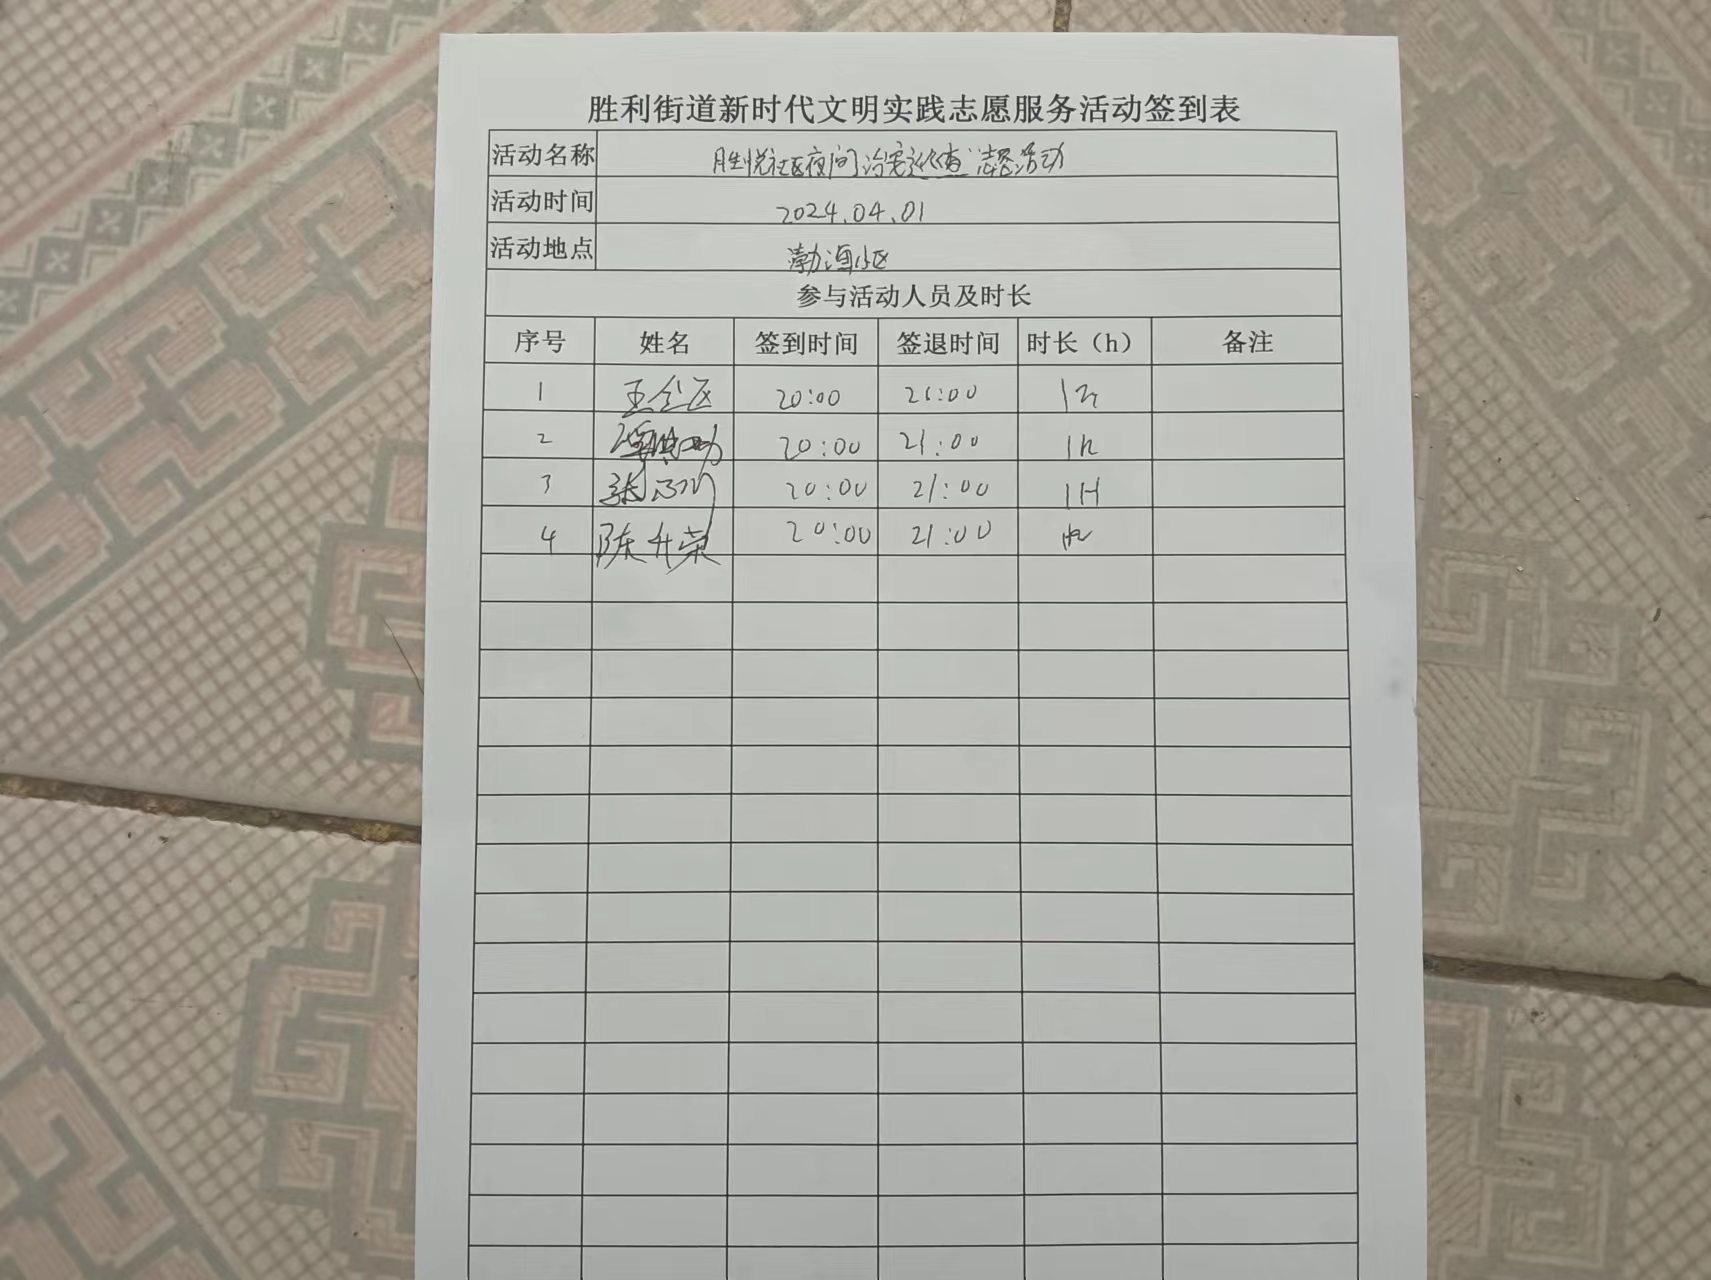 胜利街道新时代文明实践志愿服务活动签到表
活动名称 胜悦社区夜间治安巡查"志愿活动
活动时间 2024.04.01
活动地点 渤海小区
参与活动人员及时长
序号 姓名 签到时间 签退时间 时长（h） 备注
1 20:00 21:00 1h
2 20:00 21:00 1h
3 张 20:00 21:00 1H
4 陈升荣 20:00 21:00 1h